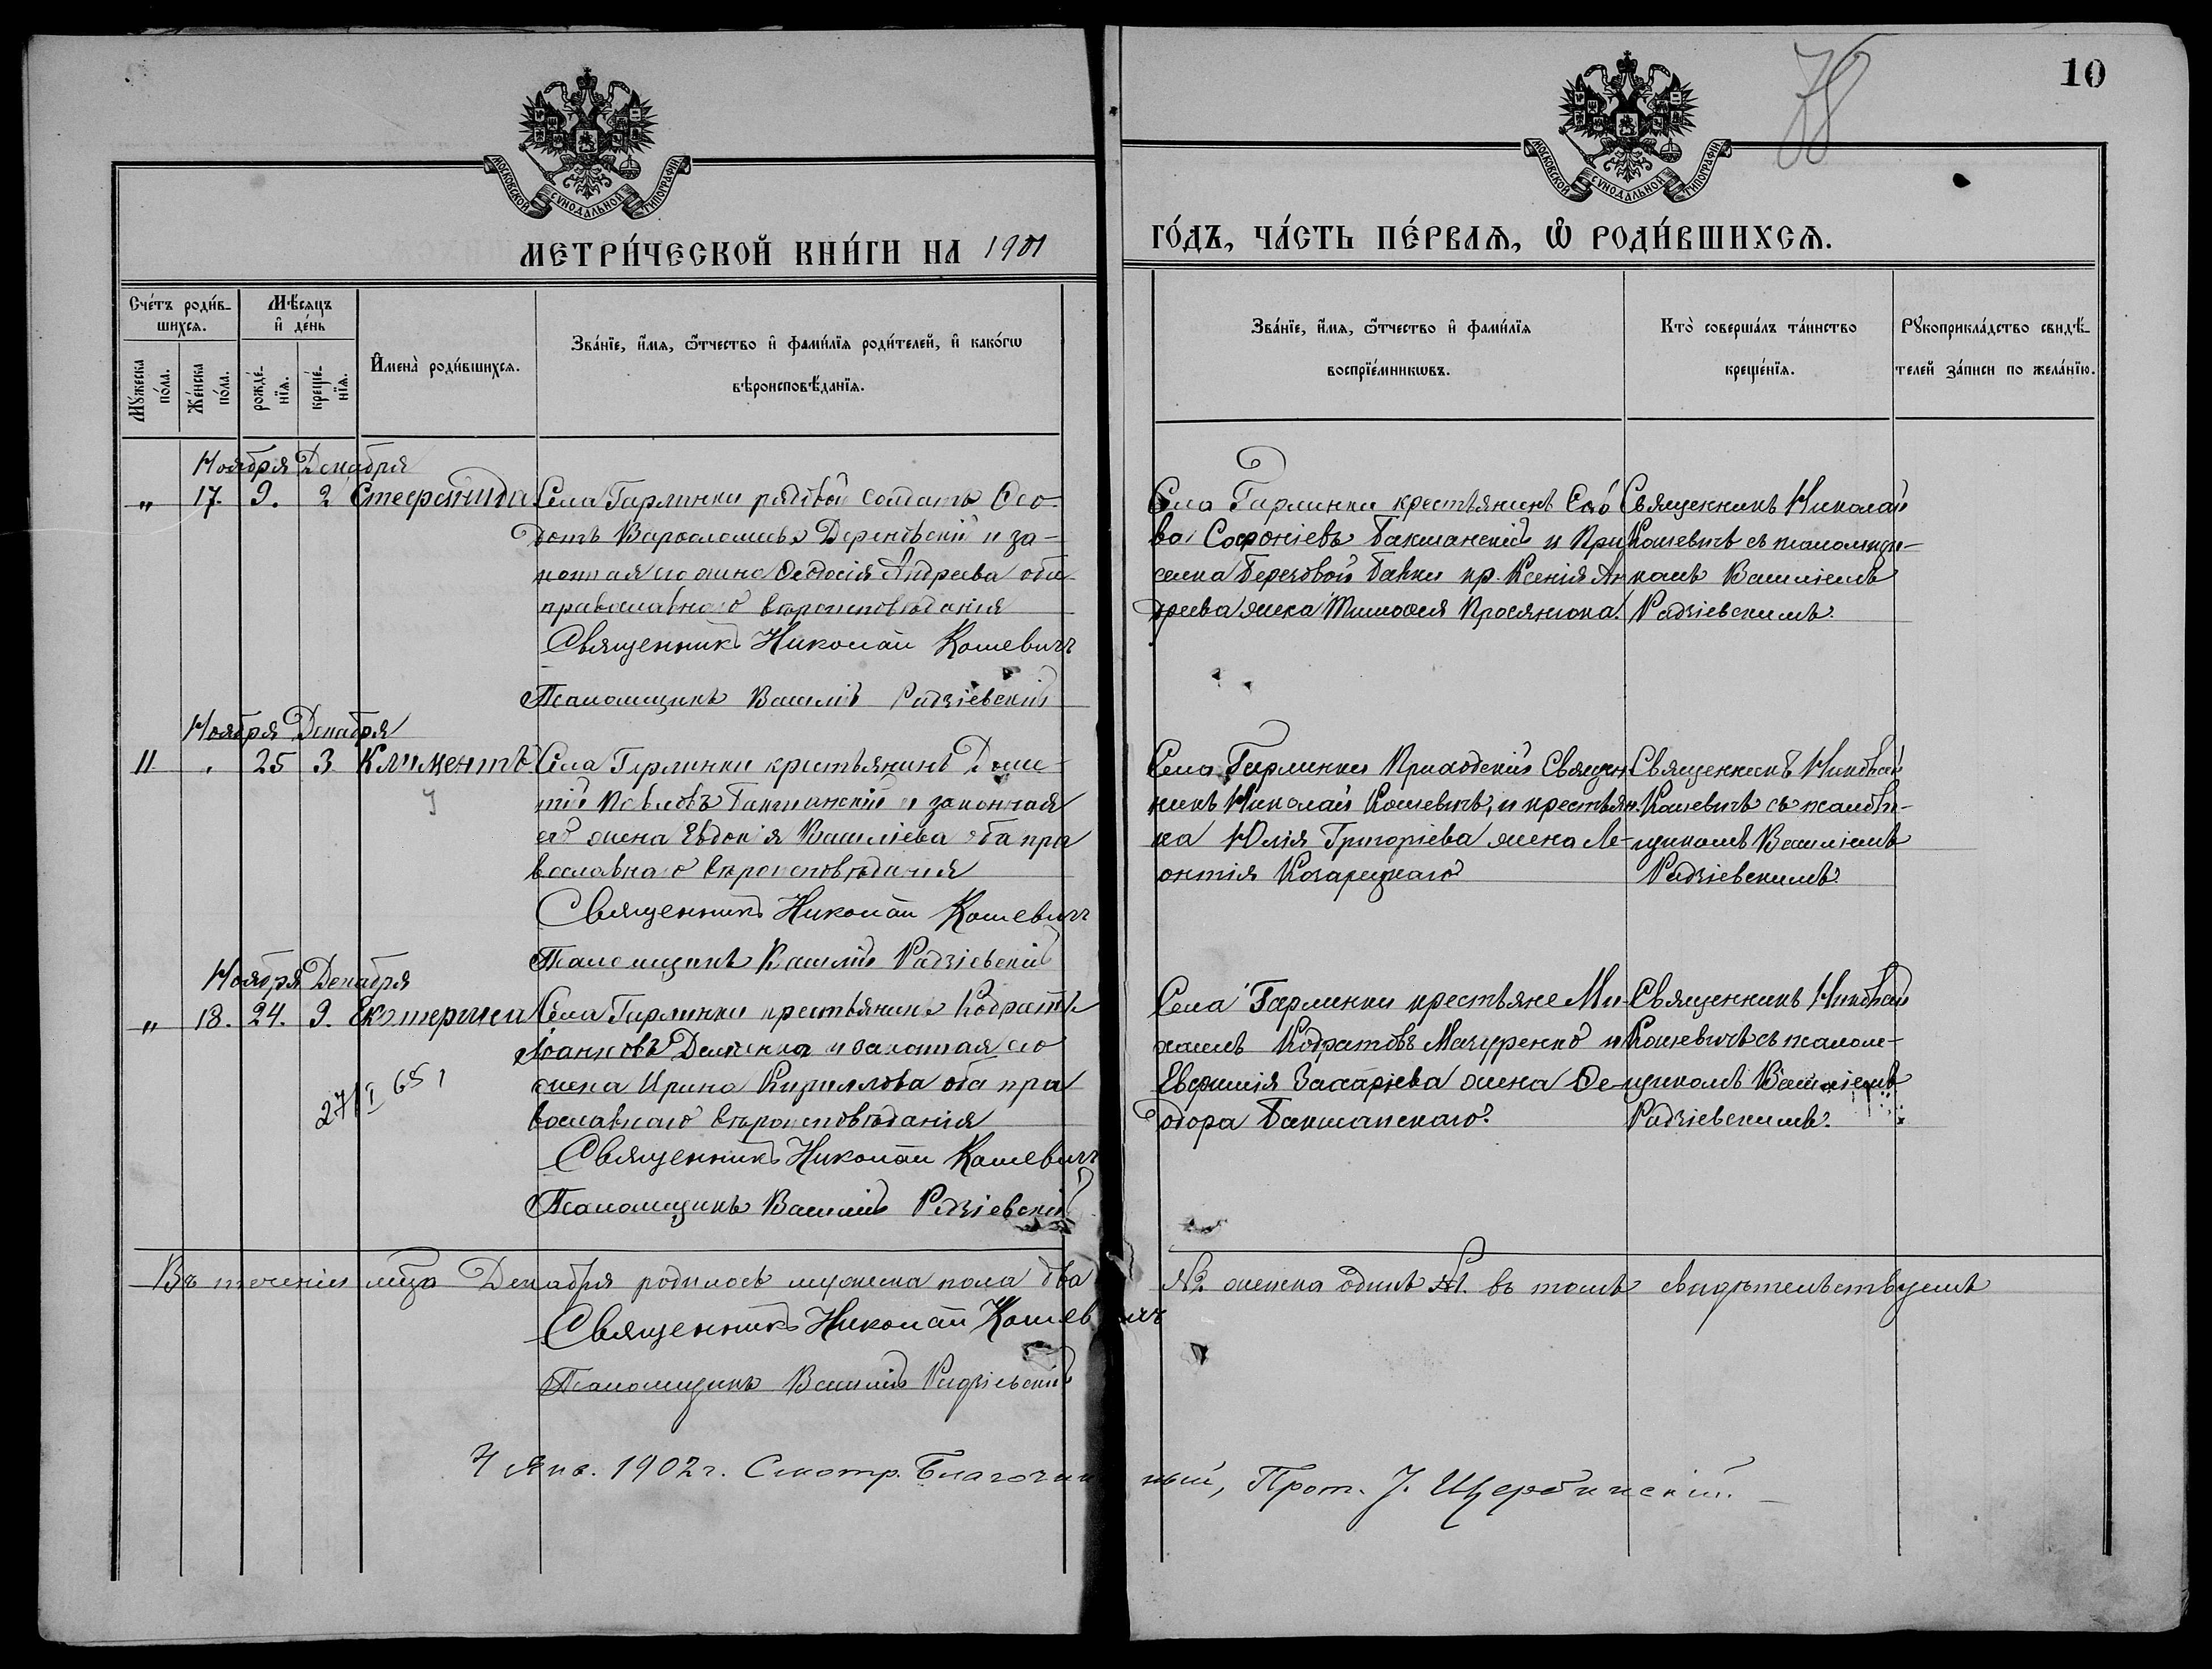 10
78
МОСКОВСКОЙ СУНОДАЛЬНОЙ ТИПОГРАФІИ
МОСКОВСКОЙ СУНОДАЛЬНОЙ ТИПОГРАФІИ
МЕТРИ́ЧЕСКОЙ КНИ́ГИ НА 1901
ГО́ДЪ, ЧА́СТЬ ПЕ́РВАѦ, Ѽ РОДИ́ВШИХСѦ.
Сче́тъ роди́в-
шихсѧ.
Мѣ́сѧцъ
и҆ де́нь
Мꙋ́жеска
по́ла.
Же́нска
по́ла.
рожде́-
нїѧ.
креще́-
нїѧ.
И҆мена̀ роди́вшихсѧ.
Зва́нїе, и҆́мѧ, ѻ҆́тчество и҆ фами́лїѧ роди́телей, и҆ како́гѡ
вѣроисповѣ́данїѧ.
Зва́нїе, и҆́мѧ, ѻ҆́тчество и҆ фами́лїѧ
воспрїе́мникѡвъ.
Кто̀ соверша́лъ та́инство
креще́нїѧ.
Рꙋкоприкла́дство свидѣ́-
телей за́писи по жела́нїю.
Ноября Декабря
" 17. 9. 2 Стефанида
Села Гарлинки рядовой солдатъ Ѳео-
дотъ Варѳоломіевъ и за-
конная его жена Ѳеодосія Андреева оба
православнаго вѣроисповѣданія
Священникъ Николай Кошевичъ
Псаломщикъ Василій Радзіевскій
Села Гарлинки крестьянинъ Сав
ва Софоніевъ Бакшанскій и При
селка Березовой Балки кр. Ксенія Ан
дреева жена Тимоѳея Просянюка.
Священникъ Николай
Кошевичъ съ псаломщи-
комъ Василіемъ
Радзіевскимъ.
Ноября Декабря
11 . 25 3 Климентъ
Села Гарлинки крестьянинъ Доме-
тій Павловъ Бакшанскій и законная
его жена Евдокія Василіева оба пра
вославнаго вѣроисповѣданія
Священникъ Николай Кошевичъ
Псаломщикъ Василій Радзіевскій
Села Гарлинки Приходскій Священ
никъ Николай Кошевичъ, и крестьян.
ка Юлія Григоріева жена Ле-
онтія Козарецкаго
Священникъ Николай
Кошевичъ съ псалом-
щикомъ Василіемъ
Радзіевскимъ.
Ноября Декабря
" 18. 24. 9. Екатерина
27/I 65 1
Села Гарлинки крестьянинъ Кодратъ
Іоанновъ и законная его
жена Ирина Кириллова оба пра
вославнаго вѣроисповѣданія
Священникъ Николай Кошевичъ
Псаломщикъ Василій Радзіевскій
Села Гарлинки крестьяне Ми-
хаилъ Кодратовъ Мазуренко и
Евфимія Захаріева жена Ѳе-
одора Бакшанскаго.
Священникъ Николай
Кошевичъ съ псалом-
щикомъ Василіемъ
Радзіевскимъ.
Въ теченіи мца Декабря родилось мужеска пола два №2 женска одинъ №1. въ томъ свидѣтельствуемъ
Священникъ Николай Кошевичъ
Псаломщикъ Василій Радзіевскій
4 Янв. 1902 г. Смотр. Благочинный, Прот. І. Щербинскій.